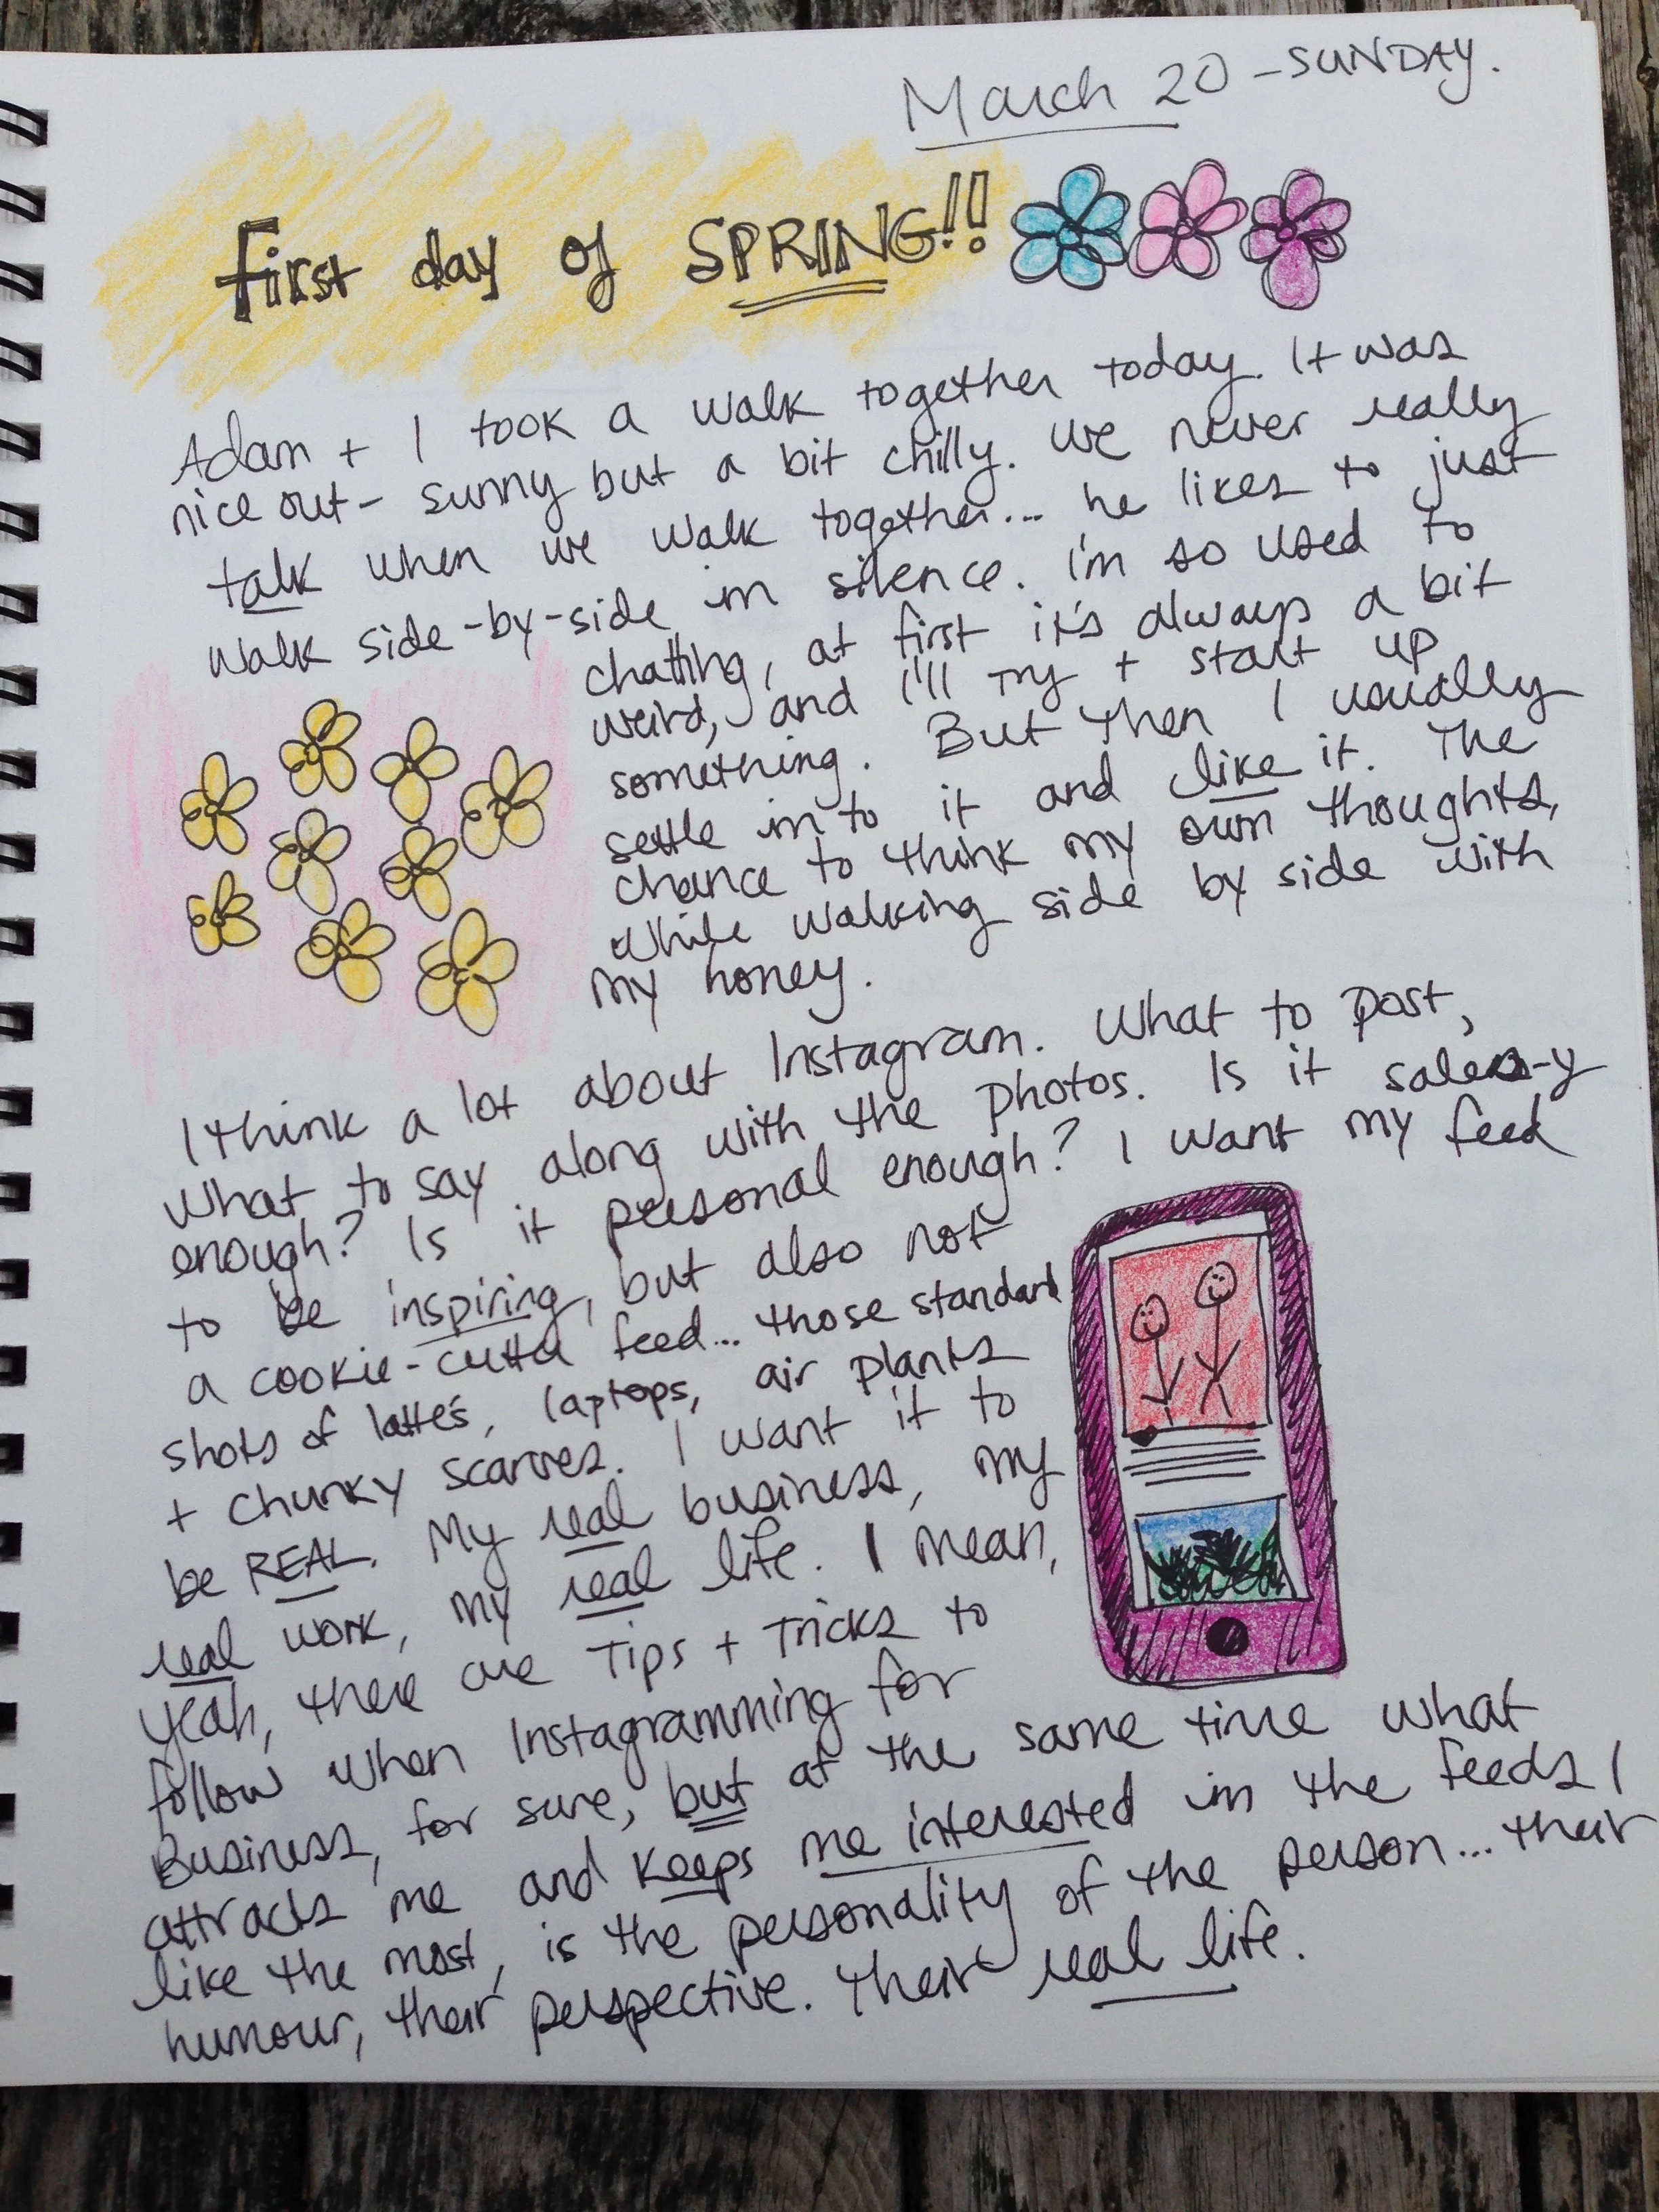 March 20 - SUNDAY.
First day of SPRING!!
Adam + I took a walk together today. It was
nice out - sunny but a bit chilly. We never really
talk when we walk together... he likes to just
walk side-by-side in silence. I'm so used to
chatting, at first it's always a bit
weird, and I'll try + start up
something. But then I usually
settle in to it and like it. The
chance to think my own thoughts,
while walking side by side with
my honey.
I think a lot about Instagram. What to post,
what to say along with the photos. Is it sales-y
enough? Is it personal enough? I want my feed
to be inspiring, but also not
a cookie-cutter feed... those standard
shots of latte's, laptops, air plants
+ chunky scarves. I want it to
be REAL. My real business, my
real work, my real life. I mean,
yeah, there are Tips + Tricks to
follow when Instagramming for
Business, for sure, but at the same time what
attracts me and keeps me interested in the feeds I
like the most, is the personality of the person... their
humour, their perspective. Their real life.